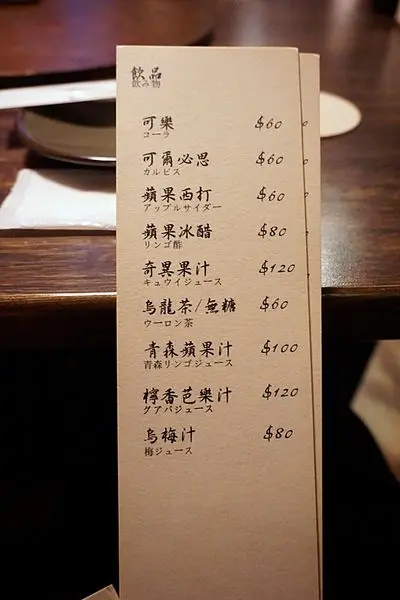 飲品
飲み物
可樂 $60
コーラ
可爾必思 $60
カルピス
蘋果西打 $60
アップルサイダー
蘋果冰醋 $80
リンゴ酢
奇異果汁 $120
キュウイジュース
烏龍茶/無糖 $60
ウーロン茶
青森蘋果汁 $100
青森リンゴジュース
檸香芭樂汁 $120
グアバジュース
烏梅汁 $80
梅ジュース